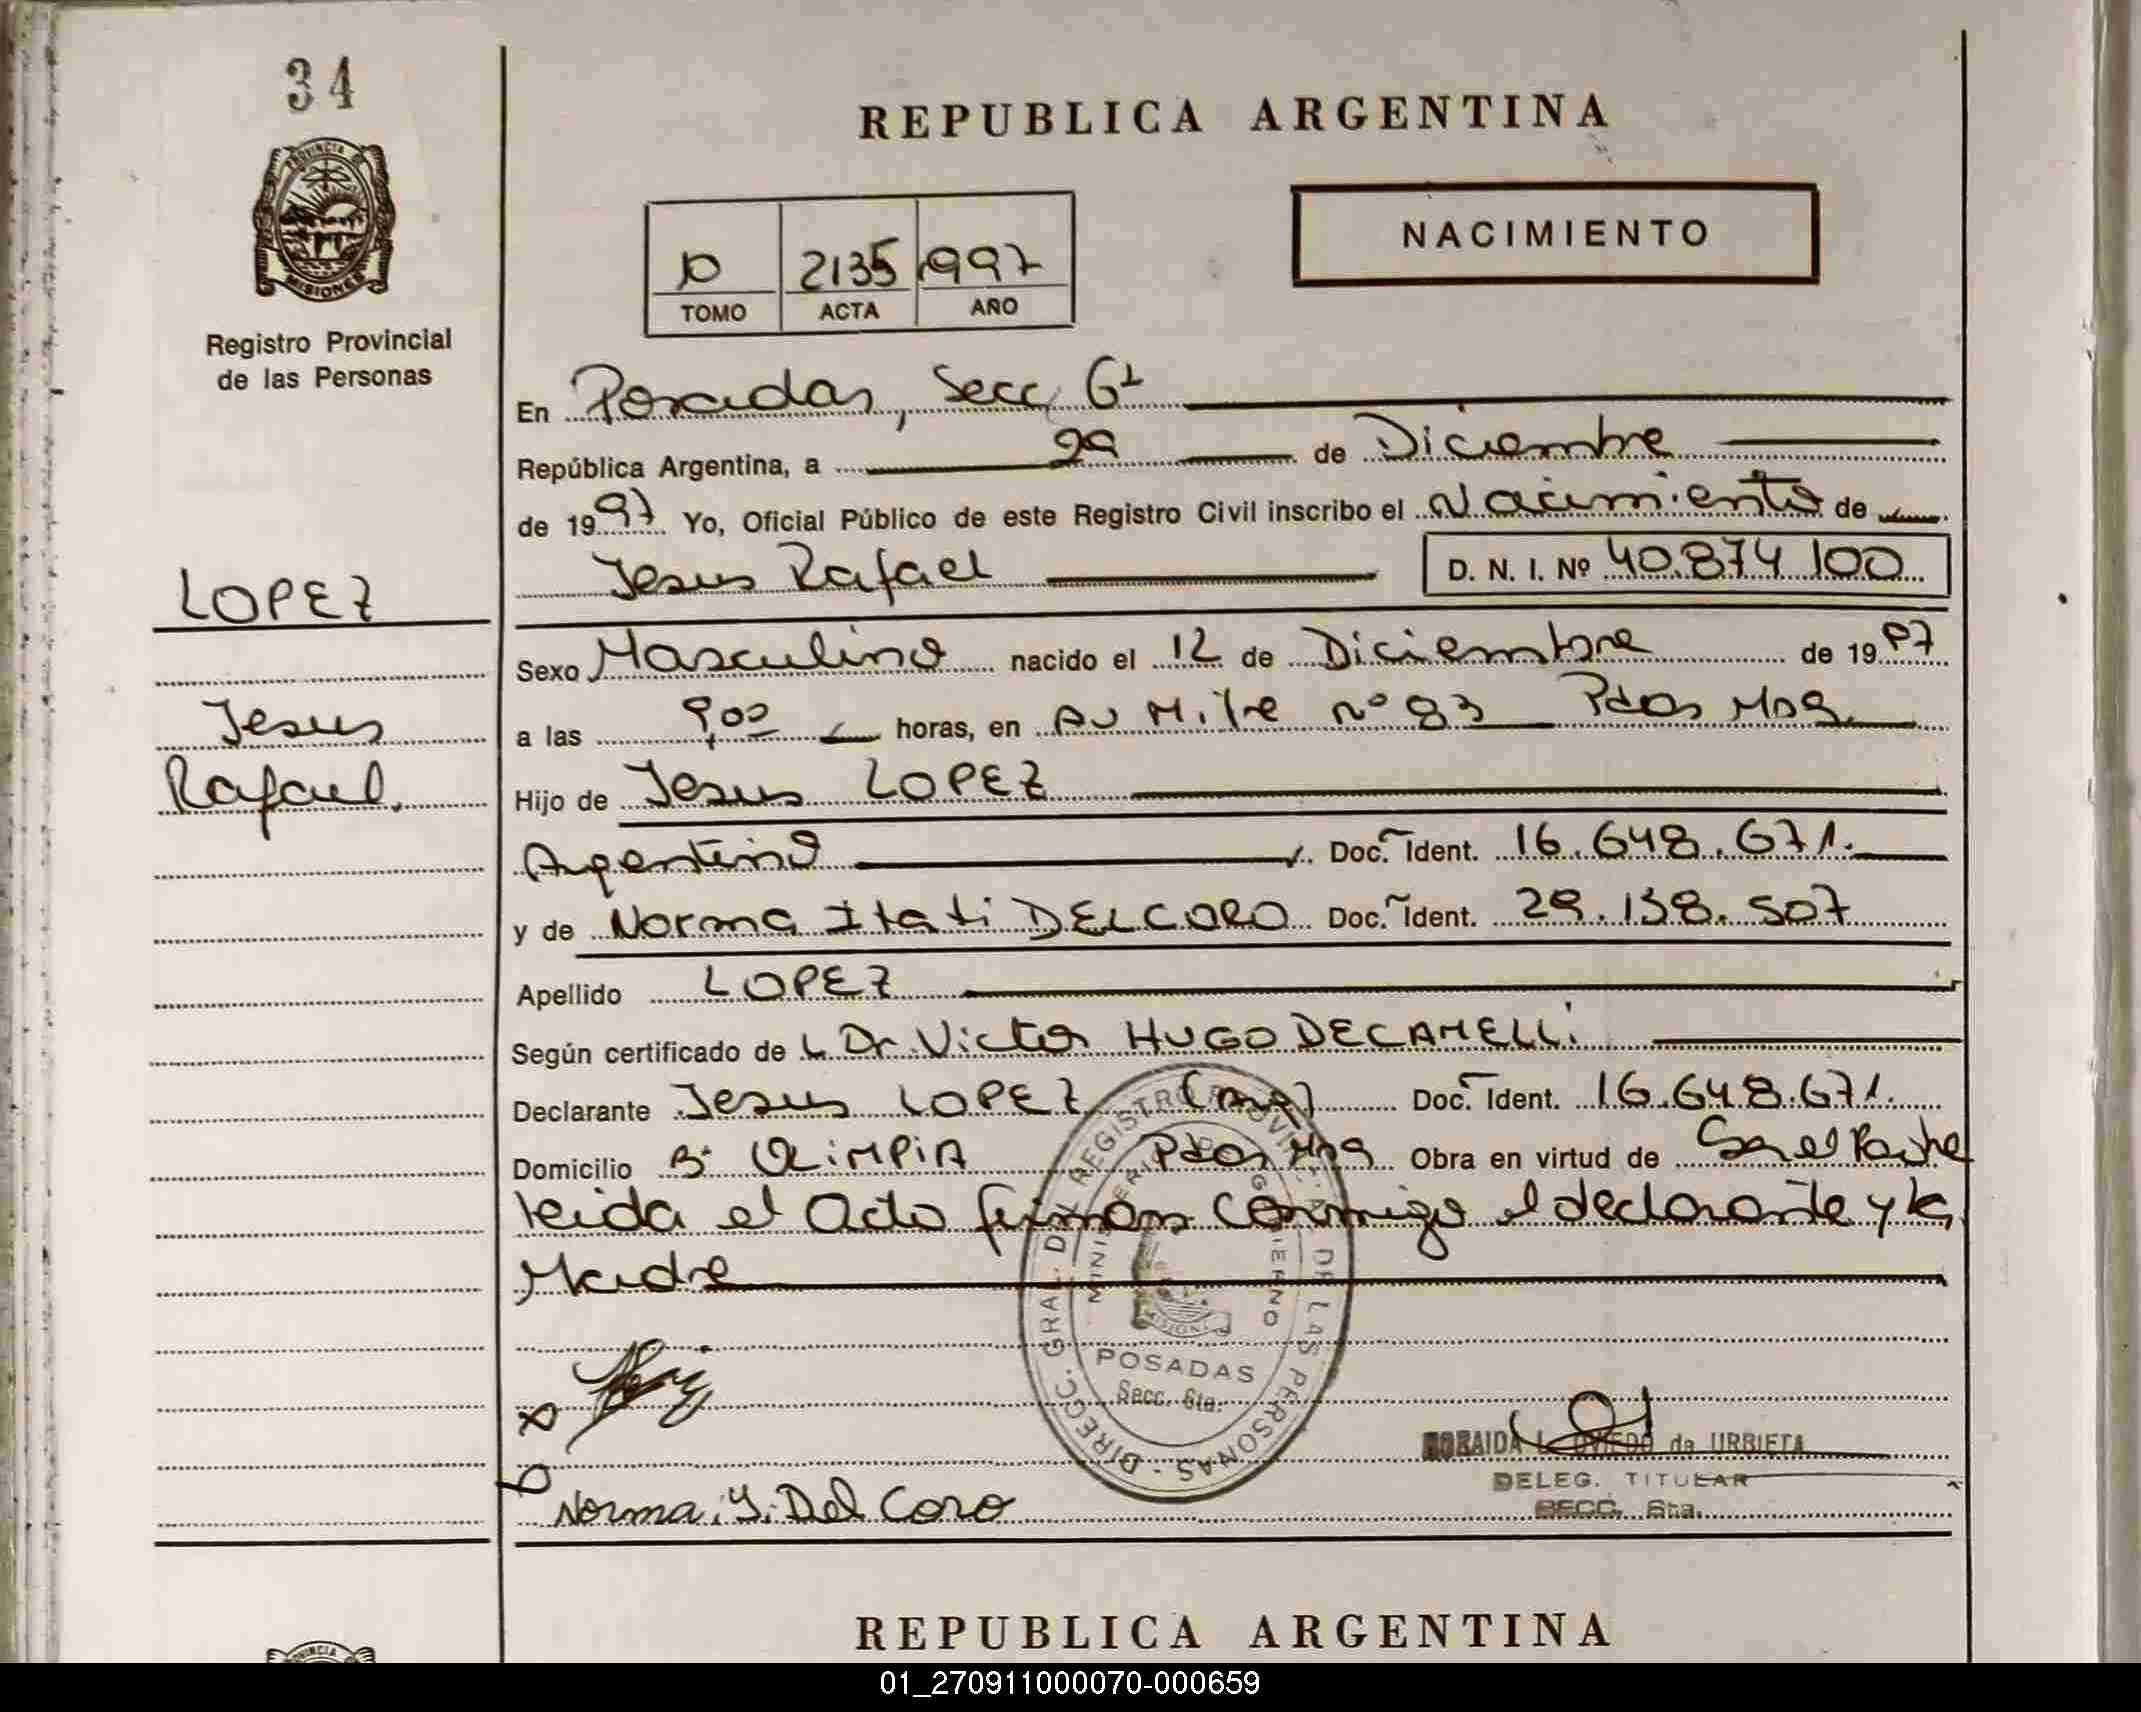 34
PROVINCIA DE
MISIONES
Registro Provincial
de las Personas
LOPEZ
Jesus
Rafael.
REPUBLICA ARGENTINA
NACIMIENTO
2135 1997
TOMO ACTA AÑO
En Posadas, Secc 6ª
República Argentina, a 29 de Diciembre
de 1997 Yo, Oficial Público de este Registro Civil inscribo el Nacimiento de
Jesus Rafael D. N. I. Nº 40.874.100
Sexo Masculino nacido el 12 de Diciembre de 1997
a las 9,00 horas, en Av Mitre nº 83 Pdas Mnes
Hijo de Jesus LOPEZ
Argentino Doc. Ident. 16.648.671.
y de Norma Itati DELCORO Doc. Ident. 29.138.507
Apellido LOPEZ
Según certificado de L Dr. Victor HUGO DECAMELLi
Declarante Jesus LOPEZ (arg) Doc. Ident. 16.648.671.
Domicilio Bº OLiMPiA Pdas Mnes Obra en virtud de Ser el Padre
leida el Acta firman conmigo el declarante y la
Madre
DIRECC. GRAL. DEL REGISTRO PROVINC. DE LAS PERSONAS
MINISTERIO DE GOBIERNO
MISIONES
POSADAS
Secc. 6ta.
Norma. I. Del Coro
ZORAIDA L. OVIEDO de URBIETA
DELEG. TITULAR
SECC. 6ta.
REPUBLICA ARGENTINA
PROVINCIA
01_270911000070-000659